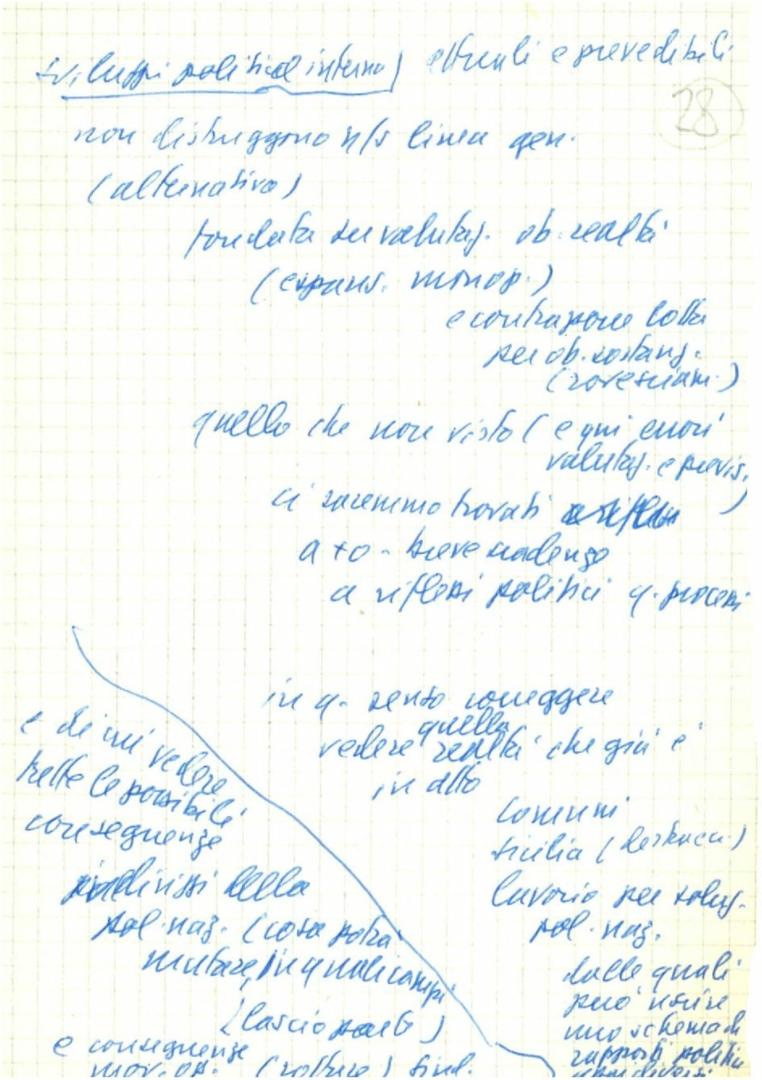 sviluppi politica interna) attuali e prevedibili
28
non distruggono n/s linea gen.
(alternativa)
fondata su valutaz. ob. realtà
(espans. monop.)
e contrapone lotta
per ob. sostanz.
(rovesciam.)
quello che non visto (e qui errori
valutaz. e previs.)
ci saremmo trovati
a +o- breve scadenza
a riflessi politici q. processi
in q. senso correggere
vedere quella realtà che già è
in atto
comuni
Sicilia (
lavorio per soluz.
pol. naz.
dalle quali
può uscire
uno schema di
rapporti politici
e di cui vedere
tutte le possibili
conseguenze
indirizzi della
pol. naz. (cosa potrà
mutare, in quali campi
(lascio part)
e conseguenze
mov. op. (rotture) sind.